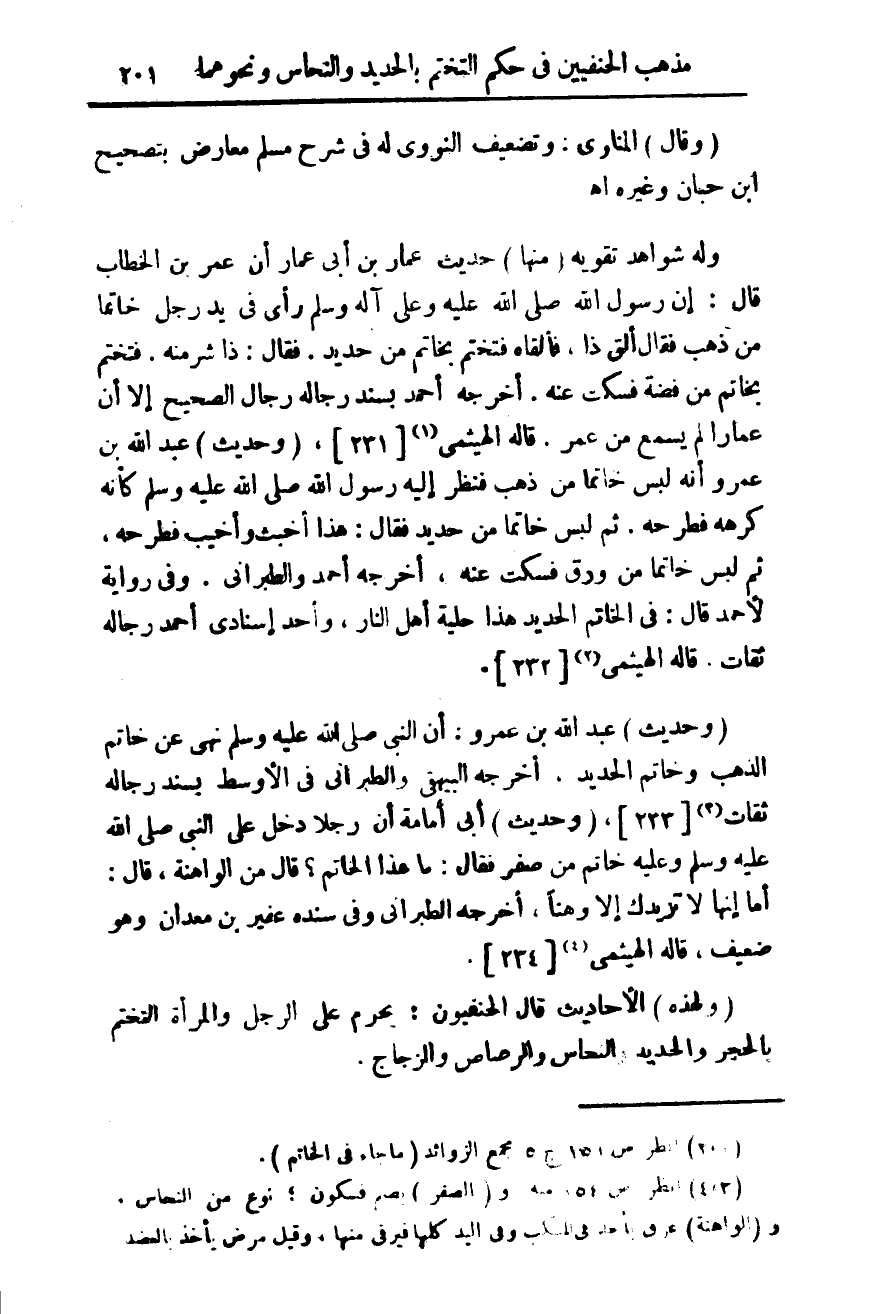 مذهب الحنفيين فى حكم التختم بالحديد والنحاس ونحوهما ٢٠١
( وقال ) المناوى : وتضعيف النووى له فى شرح مسلم معارض بتصحيح
ابن حبان وغيره اه
وله شواهد تقويه ( منها ) حديث عمار بن أبى عمار أن عمر بن الخطاب
قال : إن رسول الله صلى الله عليه وعلى آله وسلم رأى فى يد رجل خاتما
من ذهب فقال ألق ذا ، فألقاه فتختم بخاتم من حديد . فقال : ذا شر منه . فتختم
بخاتم من فضة فسكت عنه . أخرجه أحمد بسند رجاله رجال الصحيح إلا أن
عمارا لم يسمع من عمر . قاله الهيثمى(١) [ ٢٣١ ] ، ( وحديث ) عبد الله بن
عمرو أنه لبس خاتما من ذهب فنظر إليه رسول الله صلى الله عليه وسلم كأنه
كرهه فطرحه . ثم لبس خاتما من حديد فقال : هذا أخبث وأخيب فطرحه ،
ثم لبس خاتما من ورق فسكت عنه ، أخرجه أحمد والطبرانى . وفى رواية
لأحمد قال : فى الخاتم الحديد هذا حلية أهل النار ، وأحد إسنادى أحمد رجاله
ثقات . قاله الهيثمى(٢) [ ٢٣٢ ] .
( وحديث ) عبد الله بن عمرو : أن النبى صلى الله عليه وسلم نهى عن خاتم
الذهب وخاتم الحديد . أخرجه البيهقى والطبرانى فى الأوسط بسند رجاله
ثقات(٣) [ ٢٣٣ ] ، ( وحديث ) أبى أمامة أن رجلا دخل على النبى صلى الله
عليه وسلم وعليه خاتم من صفر فقال : ما هذا الخاتم ؟ قال من الواهنة ، قال :
أما إنها لا تزيدك إلا وهناً ، أخرجه الطبرانى وفى سنده عفير بن معدان وهو
ضعيف ، قاله الهيثمى(٤) [ ٢٣٤ ] .
( ولهذه ) الأحاديث قال الحنفيون : يحرم على الرجل والمرأة التختم
بالحجر والحديد والنحاس والرصاص والزجاج .
انظر ص ١٥١ ج ٥ مجمع الزوائد ( ماجاء فى الخاتم ) .
(٤،٣) انظر ص ١٥٤ منه و ( الصفر ) بضم فسكون ؛ نوع من النحاس .
و (الواهنة) عرق يأخذ فى المنكب وفى اليد كلها فيرقى منها ، وقيل مرض يأخذ بالعضد